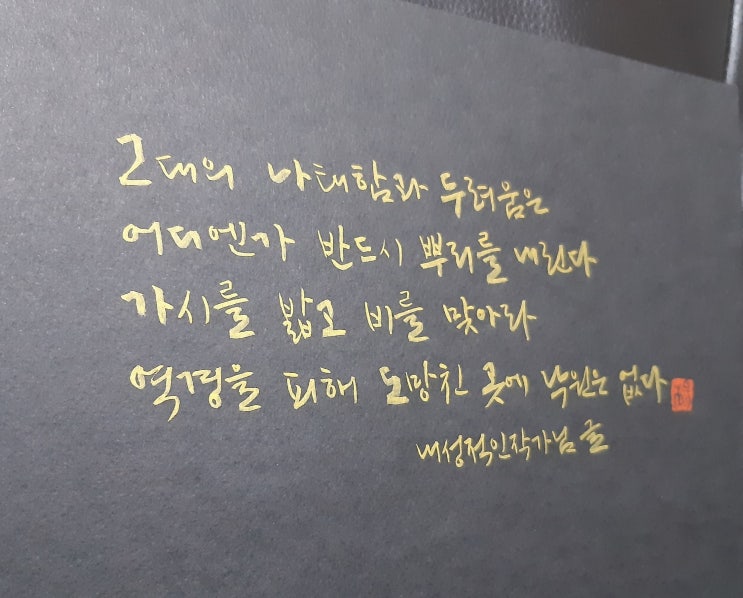 그대의 나태함과 두려움은
어디엔가 반드시 뿌리를 내린다
가시를 밟고 비를 맞아라
역경을 피해 도망친 곳에 낙원은 없다
내성적인작가님 글